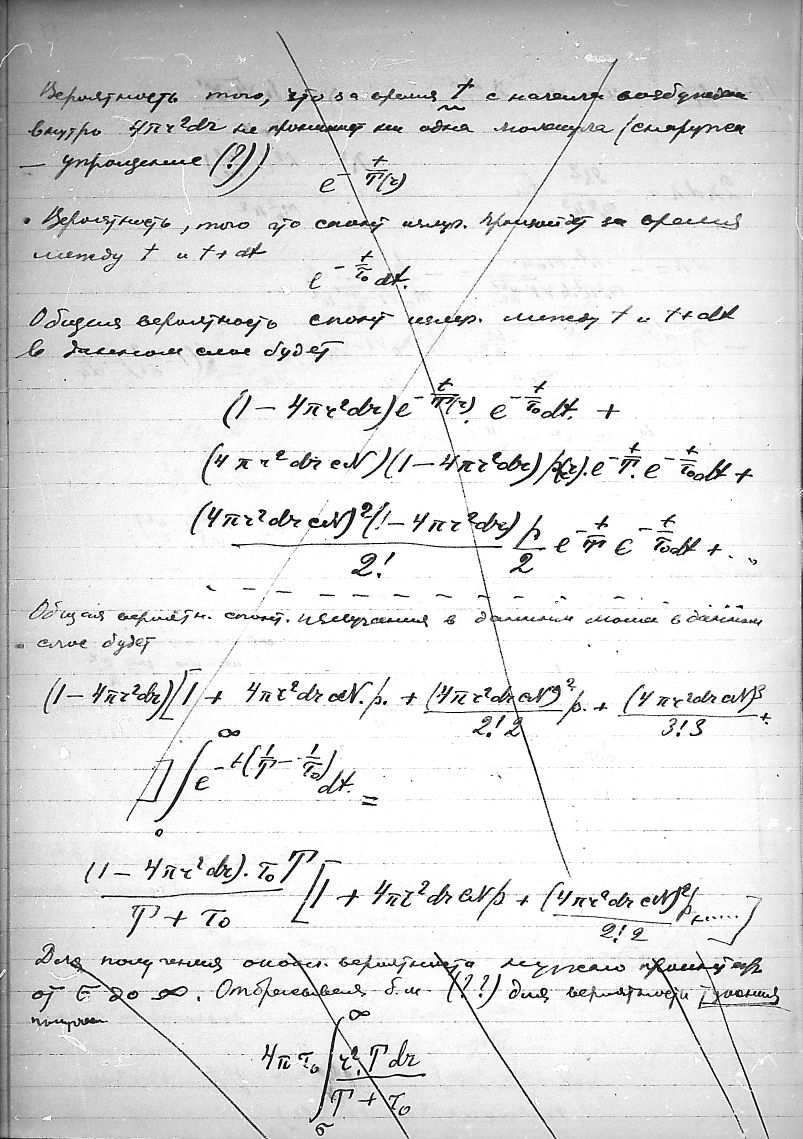 Вероятность того, что за время t с начала возбуждения
внутрь 4πr²dr не проникнет ни одна молекула (снаружи
– упрощение (?))
e^{-t/T(r)}
Вероятность, того что спонт излуч. произойдет за время
между t и t+dt
e^{-t/τ₀}dt.
Общая вероятность спонт излуч. между t и t+dt
в данном слое будет
(1 – 4πr²dr)e^{-t/T(r)}. e^{-t/τ₀}dt. +
(4πr²drN)(1 – 4πr²dr)p(r).e^{-t/T}.e^{-t/τ₀}dt +
(4πr²drN)²(1 – 4πr²dr)/2! p/2 e^{-t/T} e^{-t/τ₀}dt + ..
Общая вероятн. спонт. излучения в данном слое будет
(1 – 4πr²dr)[1 + 4πr²drN.p. + (4πr²drN)²/2!2 p. + (4πr²drN)³/3!3 +
]∫₀^∞ e^{-t(1/T – 1/τ₀)}dt. =
(1 – 4πr²dr).τ₀T/T + τ₀ [1 + 4πr²drNp + (4πr²drN)²/2!2 p+.....]
Для получения вероятности нужно
от σ до ∞. Отбрасывая б.м. (??) для вероятности тушения
получаем
4πτ₀∫_σ^∞ r².Tdr/T + τ₀